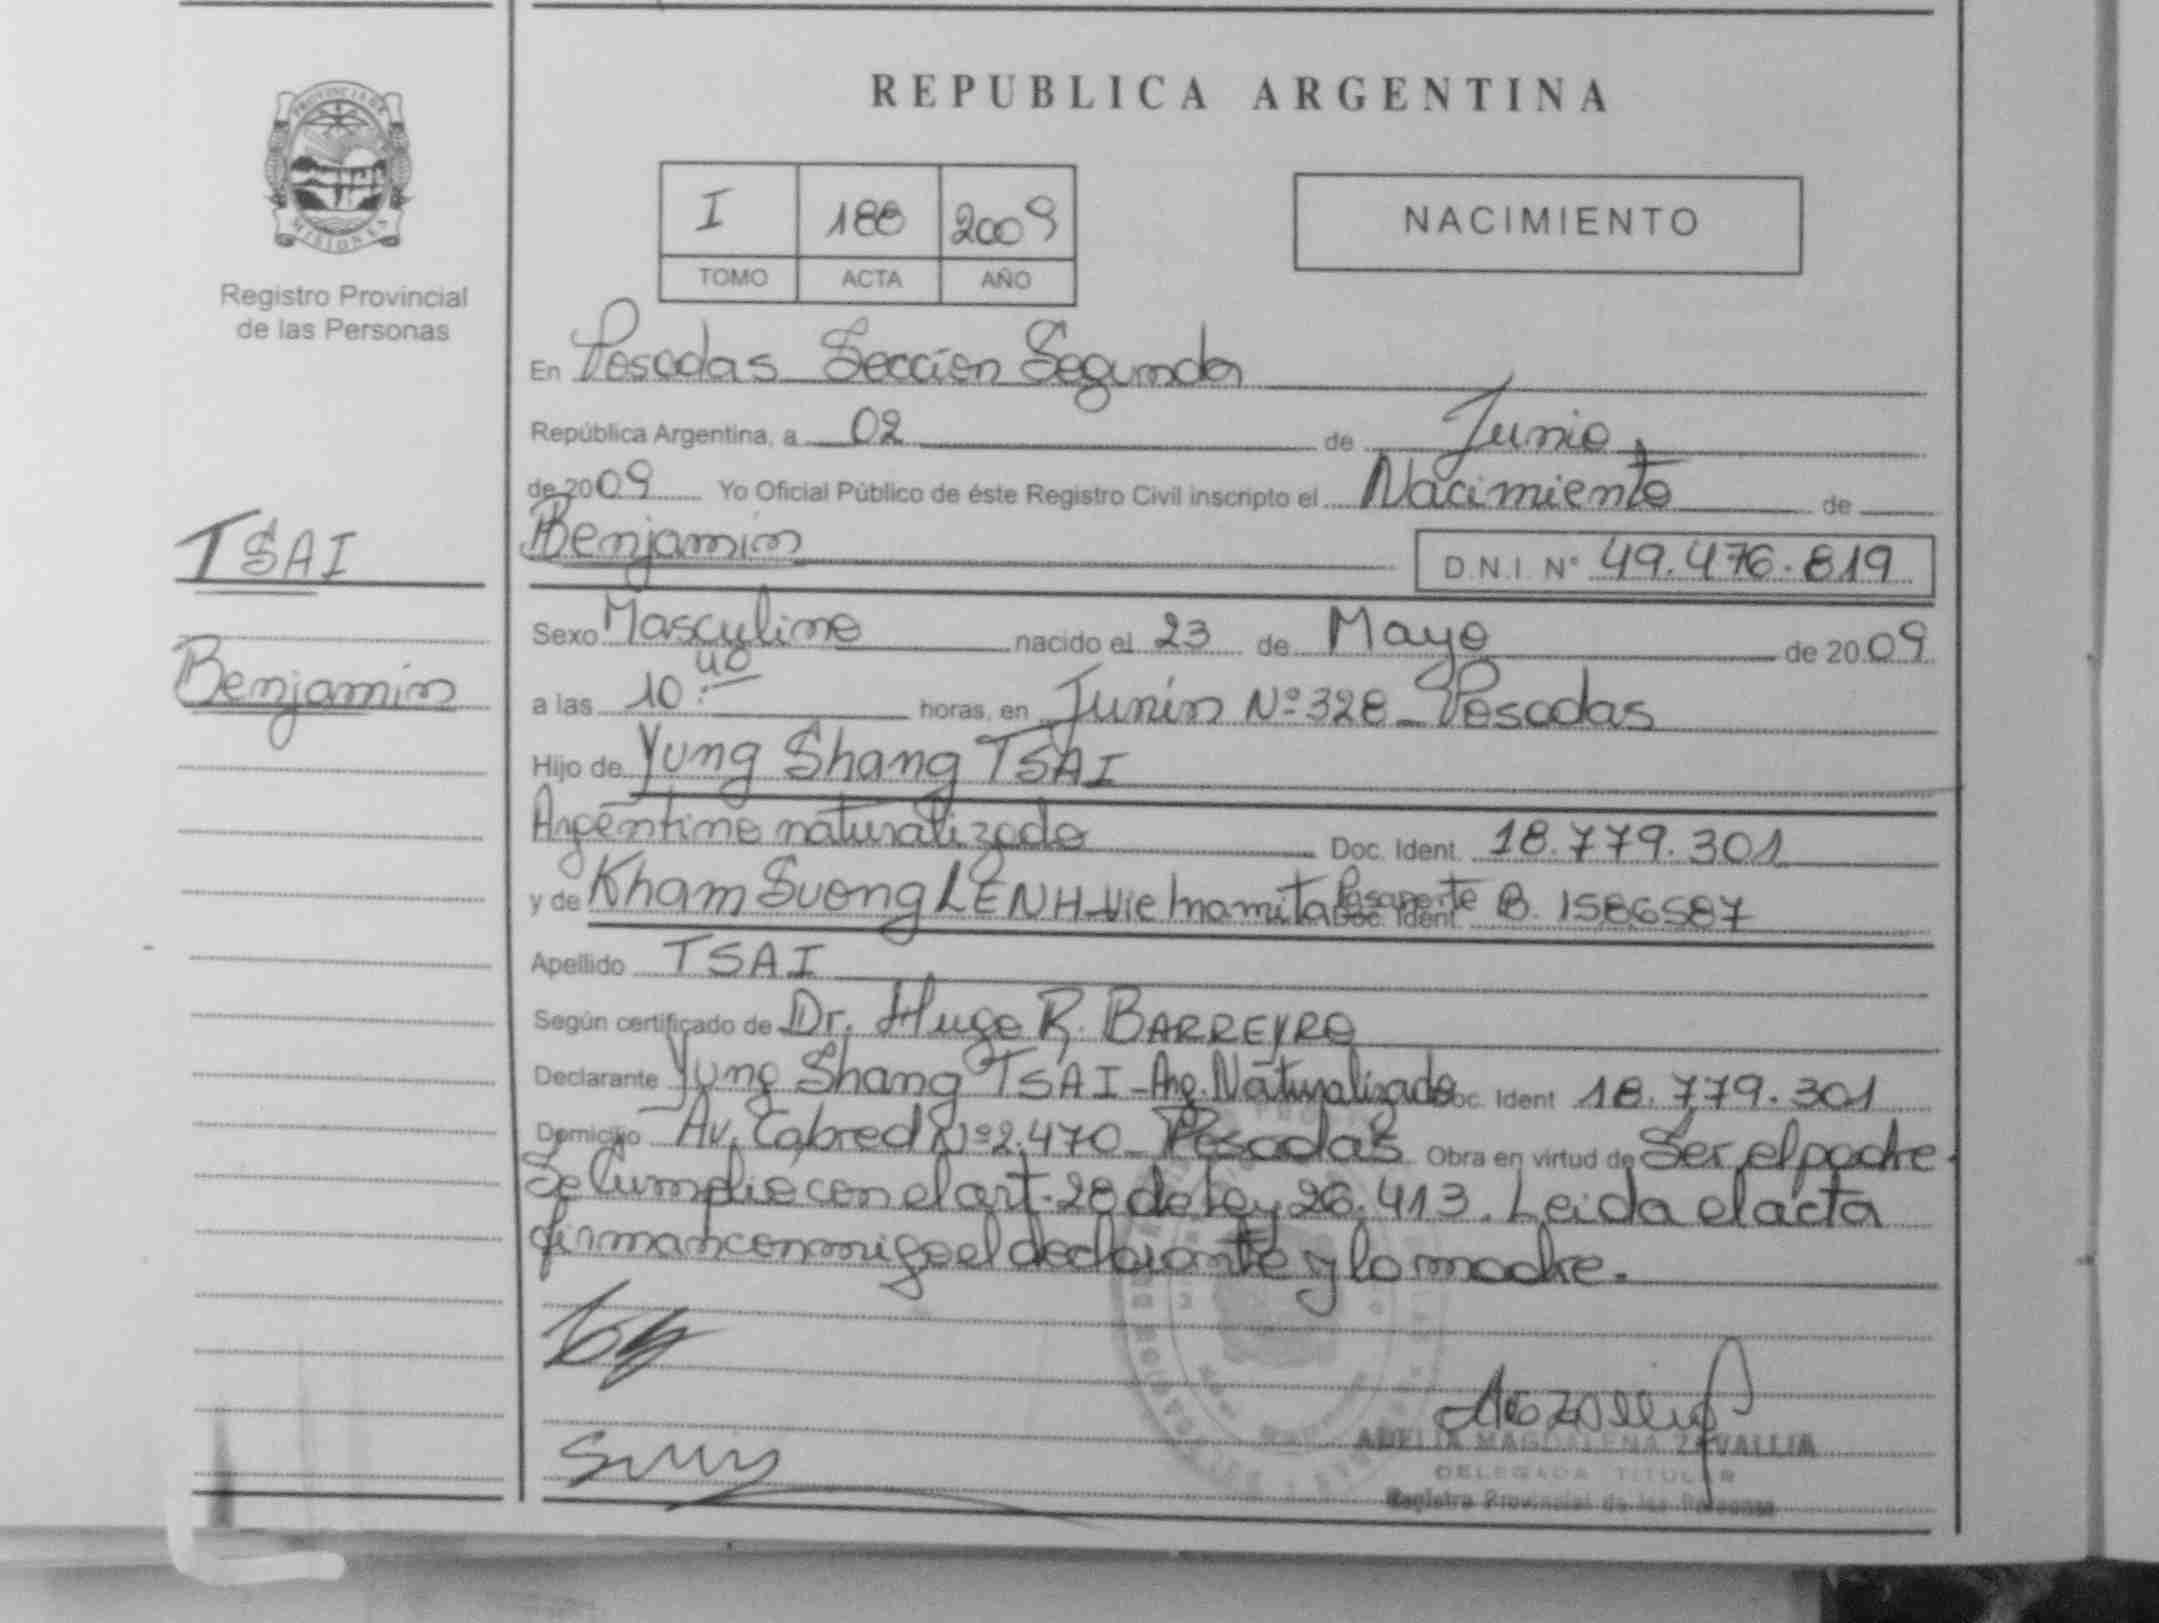 REPUBLICA ARGENTINA
PROVINCIA DE
MISIONES
Registro Provincial
de las Personas
I 188 2009
TOMO ACTA AÑO
NACIMIENTO
En Posadas Sección Segunda
República Argentina, a 02 de Junio,
de 2009 Yo Oficial Público de éste Registro Civil inscripto el Nacimiento de
TSAI
Benjamín D.N.I. N° 49.476.819
Sexo Masculino nacido el 23 de Mayo de 2009
Benjamín
a las 10:40 horas, en Junín Nº 328 - Posadas
Hijo de Yung Shang TSAI
Argentino naturalizado Doc. Ident. 18.779.301
y de Kham Suong LENH - Vietnamita Pasaporte Doc. Ident. B. 1586587
Apellido TSAI
Según certificado de Dr. Hugo R. BARREYRO
Declarante Yung Shang TSAI - Arg. Naturalizado Doc. Ident 18.779.301
Domicilio Av. Cabred Nº 2.470 - Posadas Obra en virtud de Ser el padre.
Se Cumplió con el art. 28 de Ley 26.413. Leida el acta
firman conmigo el declarante y la madre.
ADELIA MAGDALENA ZAVALLIA
DELEGADA TITULAR
Registro Provincial de las Personas